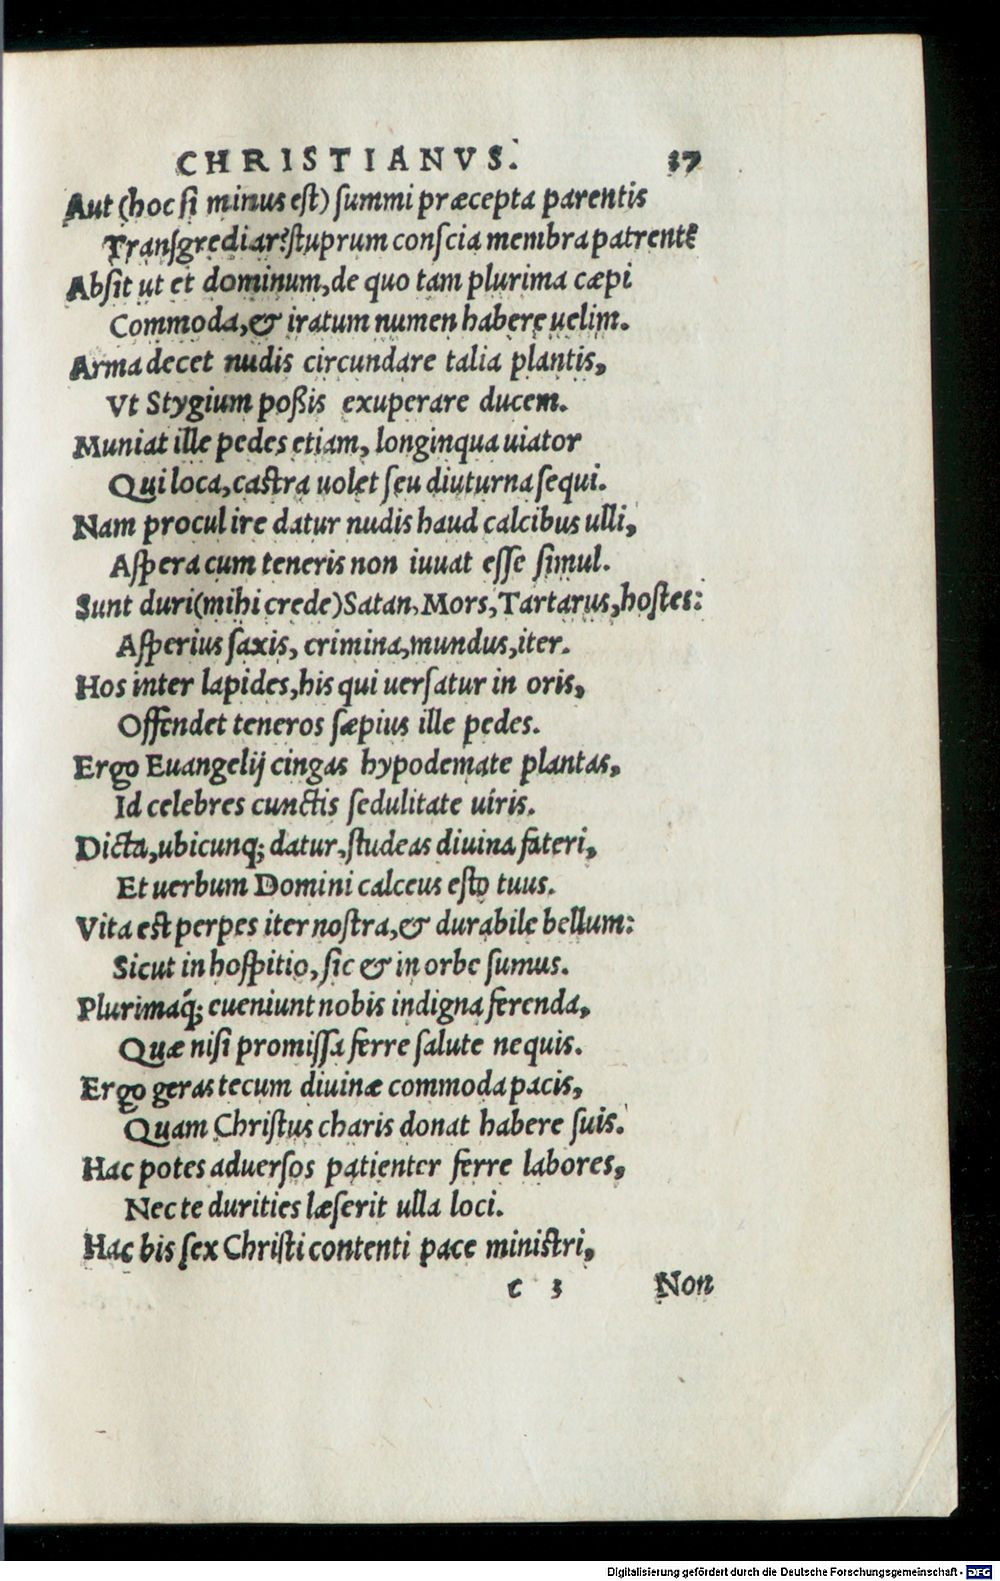 CHRISTIANVS. 37
Aut (hoc si minus est) summi præcepta parentis
Transgrediar? stuprum conscia membra patrent?
Absit ut et dominum, de quo tam plurima cæpi
Commoda, & iratum numen habere uelim.
Arma decet nudis circundare talia plantis,
Vt Stygium poßis exuperare ducem.
Muniat ille pedes etiam, longinqua uiator
Qui loca, castra uolet seu diuturna sequi.
Nam procul ire datur nudis haud calcibus ulli,
Aspera cum teneris non iuuat esse simul.
Sunt duri (mihi crede) Satan, Mors, Tartarus, hostes:
Asperius saxis, crimina, mundus, iter.
Hos inter lapides, his qui uersatur in oris,
Offendet teneros sæpius ille pedes.
Ergo Euangelij cingas hypodemate plantas,
Id celebres cunctis sedulitate uiris.
Dicta, ubicunq; datur, studeas diuina fateri,
Et uerbum Domini calceus esto tuus.
Vita est perpes iter nostra, & durabile bellum:
Sicut in hospitio, sic & in orbe sumus.
Plurimaq́; eueniunt nobis indigna ferenda,
Quæ nisi promissa ferre salute nequis.
Ergo geras tecum diuinæ commoda pacis,
Quam Christus charis donat habere suis.
Hac potes aduersos patienter ferre labores,
Nec te durities læserit ulla loci.
Hac bis sex Christi contenti pace ministri,
c 3 Non
Digitalisierung gefördert durch die Deutsche Forschungsgemeinschaft - DFG